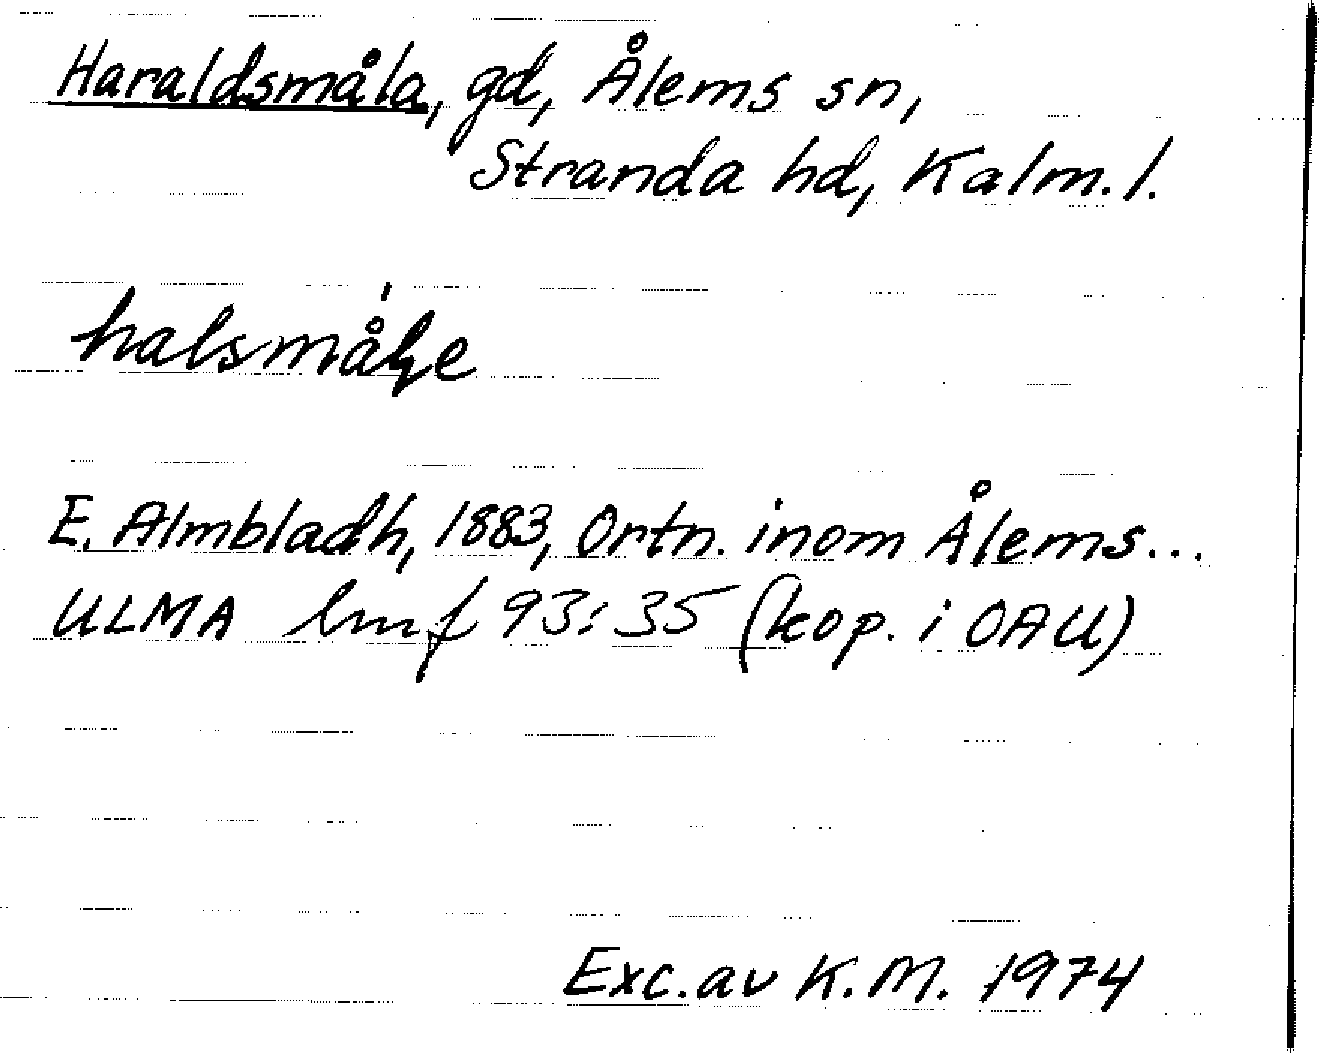 Haraldsmåla, gd, Ålems sn,
Stranda hd, Kalm. l.
E. Almbladh, 1883, Ortn. inom Ålems...
ULMA lmf 93:35 (kop. i OAU)
Exc. av K.M. 1974